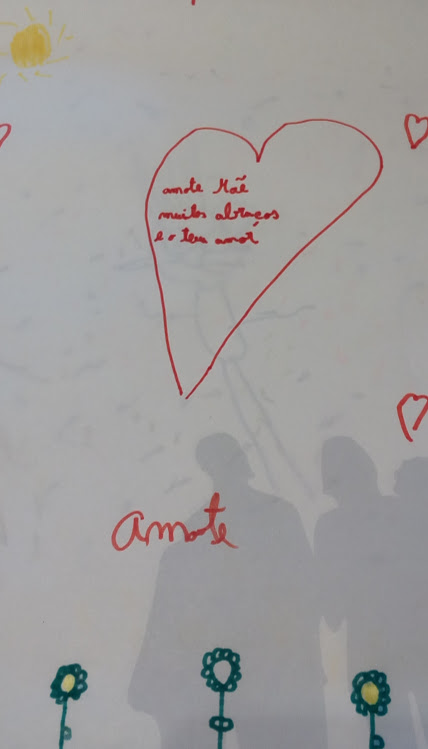 amote Mãe
muitos abraços
e o teu amor
Amote